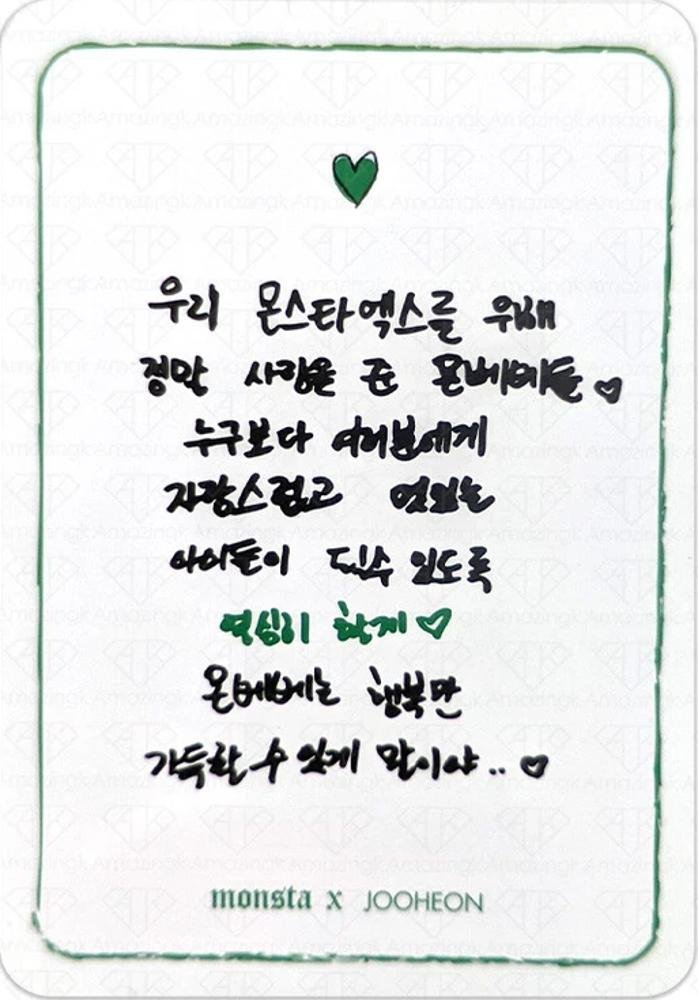 우리 몬스타엑스를 위해
정말 사랑을 준 몬베베들♡
누구보다 여러분에게
자랑스럽고
아이돌이 될수 있도록
열심히 할게♡
몬베베는 행복만
가득할 수 있게 말이야..♡
monsta x JOOHEON